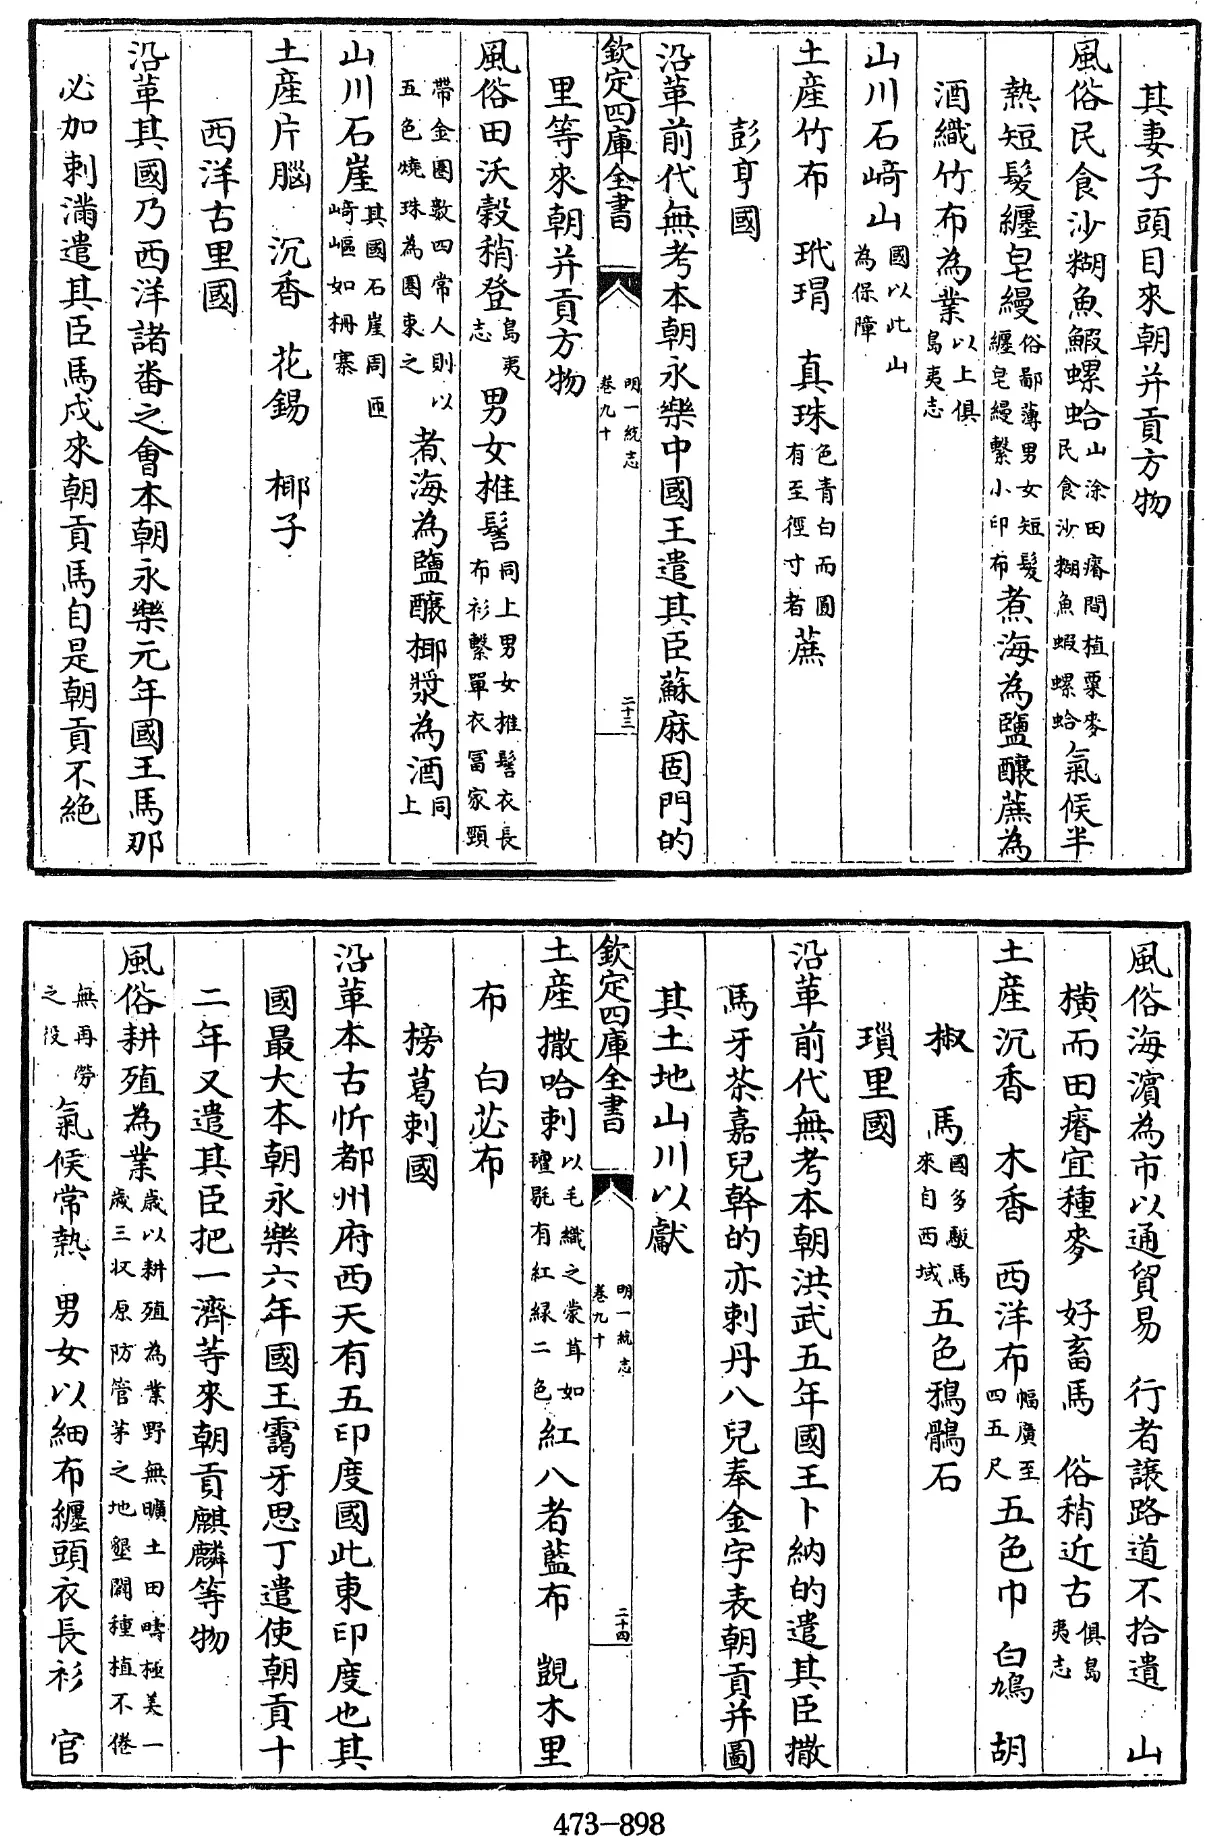 其妻子頭目來朝并貢方物
風俗民食沙糊魚鰕螺蛤山涂田瘠間植粟麥民食沙糊魚蝦螺蛤氣候半
熱短髮纏皂縵俗鄙薄男女短髮纏皂縵繫小印布煮海為鹽釀蔗為
酒織竹布為業以上俱島夷志
山川石崎山國以此山為保障
土産竹布 玳瑁 真珠色青白而圓有至徑寸者蔗
彭亨國
沿革前代無考本朝永樂中國王遣其臣蘇麻固門的
欽定四庫全書
明一統志
卷九十
二十三
里等來朝并貢方物
風俗田沃穀稍登島夷志男女椎髻同上男女椎髻衣長布衫繫單衣冨家頸
帶金圈數四常人則以五色燒珠為圈束之煮海為鹽釀椰漿為酒同上
山川石崖其國石崖周匝崎嶇如柵寨
土産片腦 沉香 花錫 椰子
西洋古里國
沿革其國乃西洋諸番之會本朝永樂元年國王馬那
必加剌滿遣其臣馬戍來朝貢馬自是朝貢不絶
風俗海濱為市以通貿易 行者讓路道不拾遺 山
橫而田瘠宜種麥 好畜馬 俗稍近古俱島夷志
土産沉香 木香 西洋布幅廣至四五尺五色巾 白鳩 胡
椒 馬國多駿馬來自西域五色鴉鶻石
瑣里國
沿革前代無考本朝洪武五年國王卜納的遣其臣撒
馬牙茶嘉兒幹的亦剌丹八兒奉金字表朝貢并圖
其土地山川以獻
欽定四庫全書
明一統志
卷九十
二十四
土産撒哈剌以毛織之蒙茸如氊毼有紅緑二色紅八者藍布 覬木里
布 白苾布
榜葛剌國
沿革本古忻都州府西天有五印度國此東印度也其
國最大本朝永樂六年國王靄牙思丁遣使朝貢十
二年又遣其臣把一濟等來朝貢麒麟等物
風俗耕殖為業歲以耕殖為業野無曠土田疇極美一歲三収原防管茅之地墾闢種植不倦
無再勞之役氣候常熱 男女以細布纏頭衣長衫 官
473-898